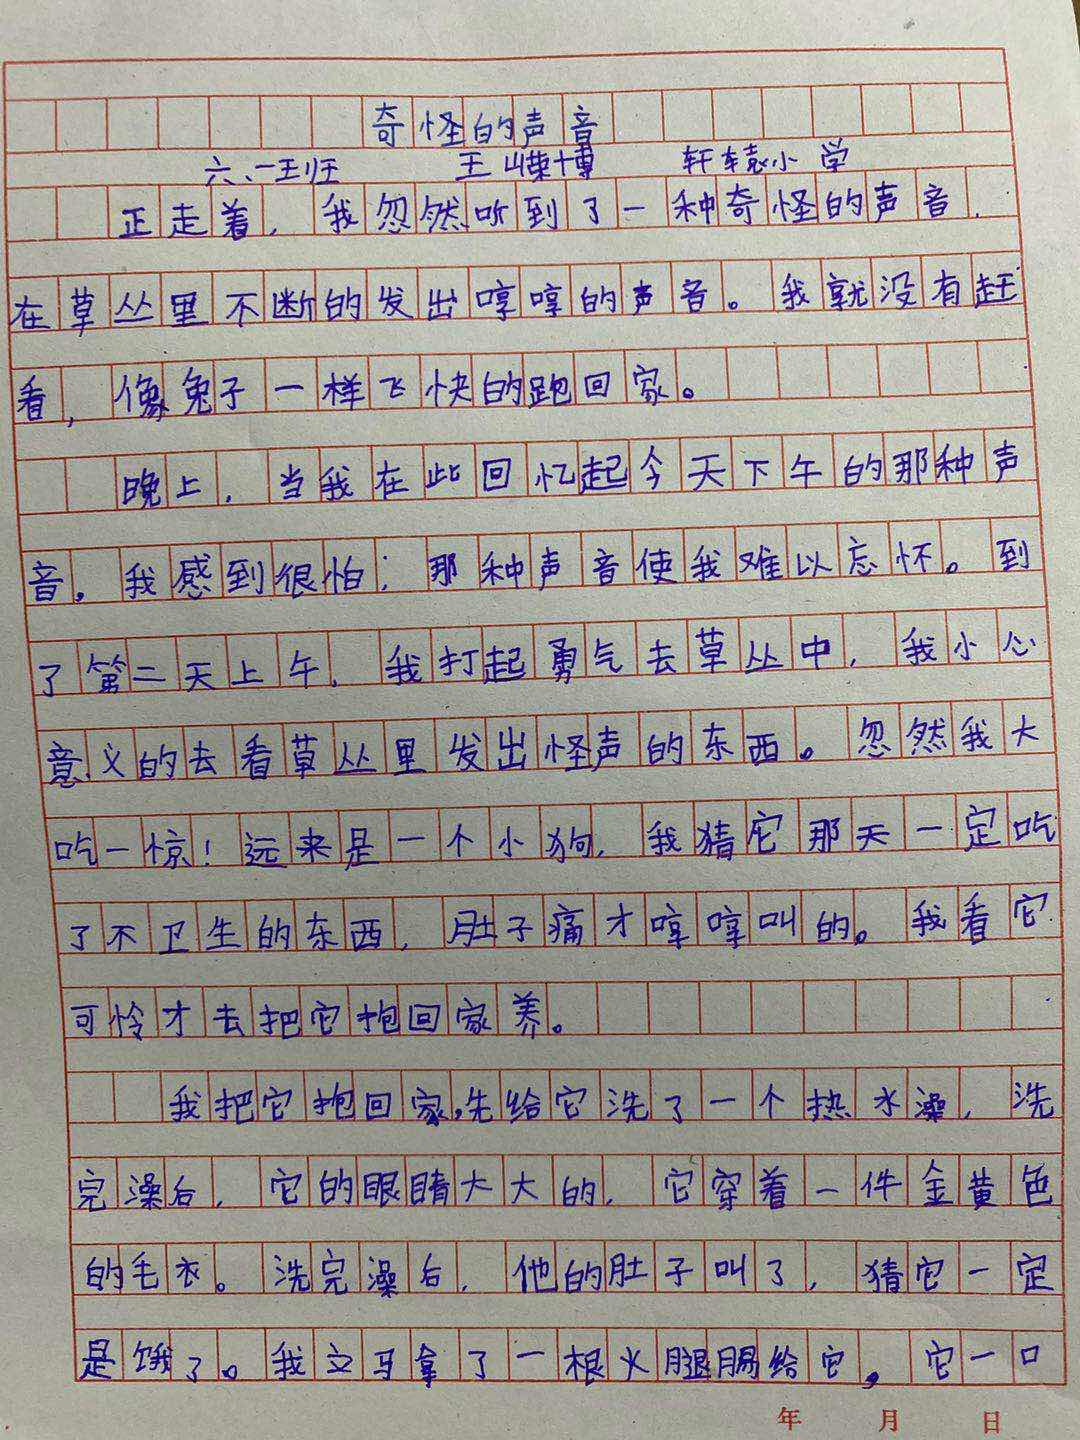 奇怪的声音
六.一班 王嵘博 轩辕小学
正走着，我忽然听到了一种奇怪的声音，
在草丛里不断的发出哼哼的声音。我就没有赶
看，像兔子一样飞快的跑回家。
晚上，当我在此回忆起今天下午的那种声
音。我感到很怕；那种声音使我难以忘怀。到
了第二天上午，我打起勇气去草丛中，我小心
意义的去看草丛里发出怪声的东西。忽然我大
吃一惊！远来是一个小狗，我猜它那天一定吃
了不卫生的东西，肚子痛才哼哼叫的。我看它
可怜才去把它抱回家养。
我把它抱回家，先给它洗了一个热水澡，洗
完澡后，它的眼睛大大的，它穿着一件金黄色
的毛衣。洗完澡后，他的肚子叫了，猜它一定
是饿了。我立马拿了一根火腿肠给它。它一口
年 月 日